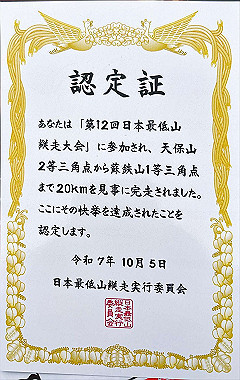 認定証
あなたは「第12回日本最低山
縦走大会」に参加され、天保山
2等三角点から蘇鉄山1等三角点
まで20kmを見事に完走されました。
ここにその快挙を達成されたことを
認定します。
令和7年10月5日
日本最低山縦走実行委員会
日本最低山
縦走実行
委員会